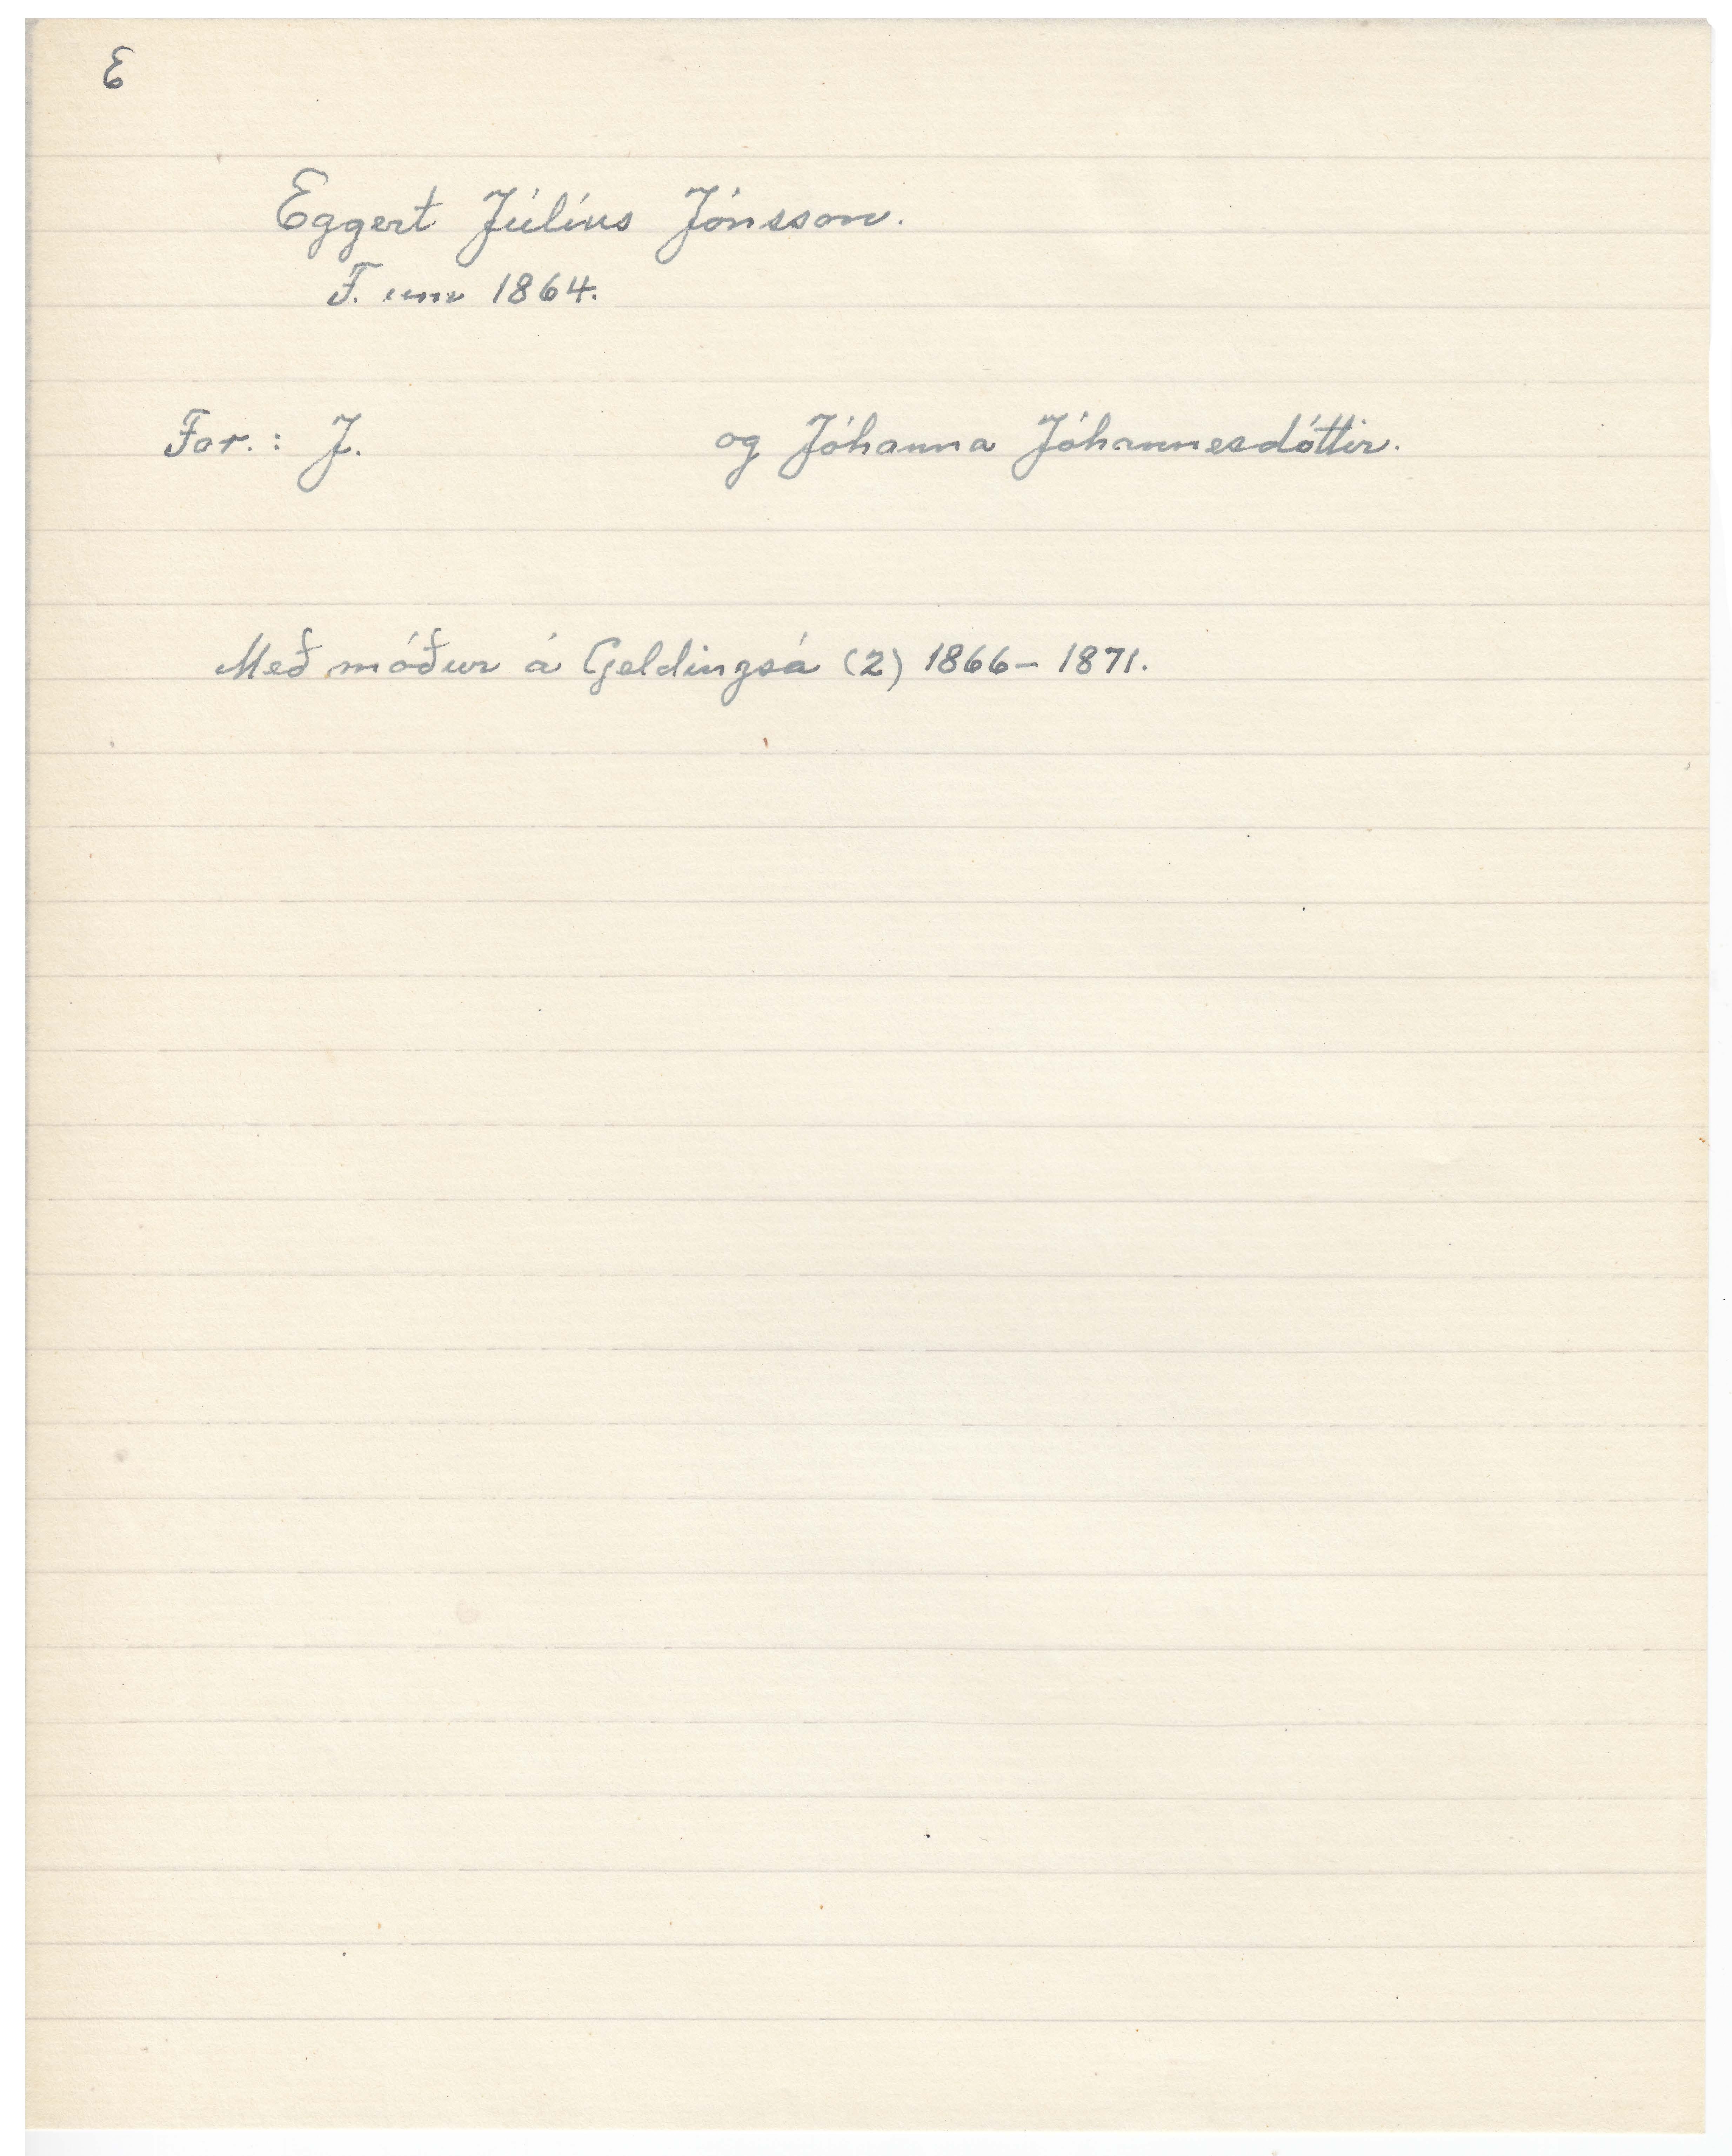 E
Eggert Júlíus Jónsson.
F. um 1864.
For.: J. og Jóhanna Jóhannesdóttir.
Með móður á Geldingsá (2) 1866-1871.